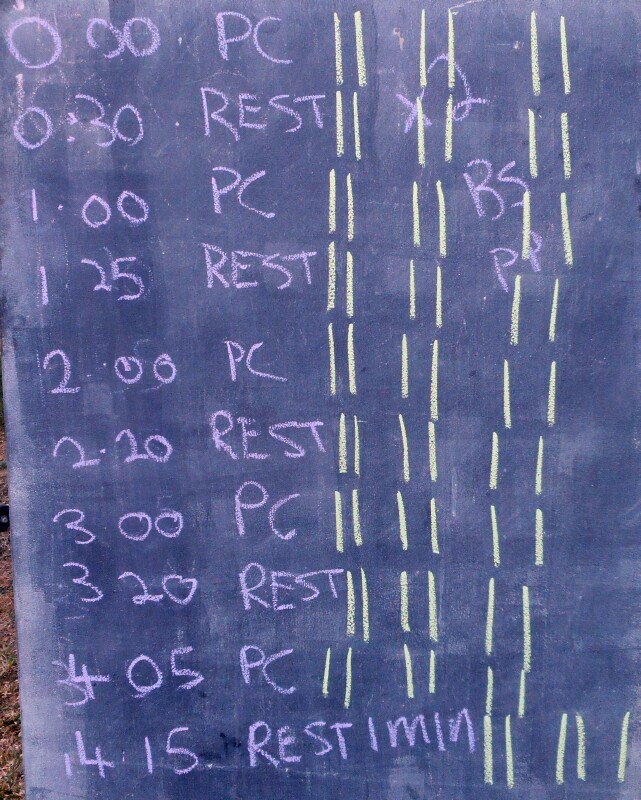 0 30 PC
0:30 REST x2
1.00 PC BS
1 25 REST PP
2.00 PC
2.20 REST
3 00 PC
3 20 REST
4 05 PC
14.15. REST 1 MIN